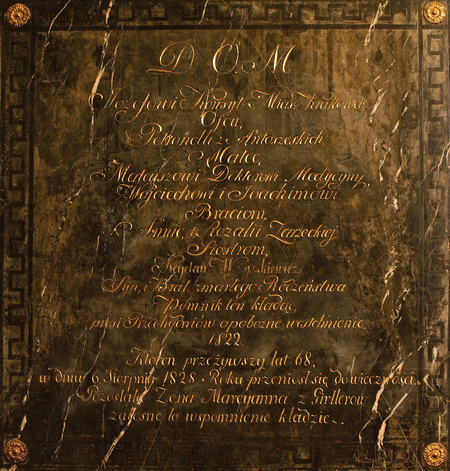 D. O. M.
Józefowi Konsyl: Mias: Krakowa
Ojcu,
Petronelli z Antoszeskich
Matce,
Mateuszowi Doktorowi Medycyny,
Woyciechowi i Joachimowi
Braciom,
Annie, i Rozalii Zarzeckiej
Siostrom,
Kajetan
Syn, i Brat zmarłego Rodzeństwa
Pomnik ten kładąc,
prosi Przechodniów o pobożne westchnienie.
1822.
Któren przeżywszy lat 68.
w dniu 6. Sierpnia 1828 Roku przeniosł się do wieczności,
Pozostała Żona Maryanna z
żałosne to wspomnienie kładzie.